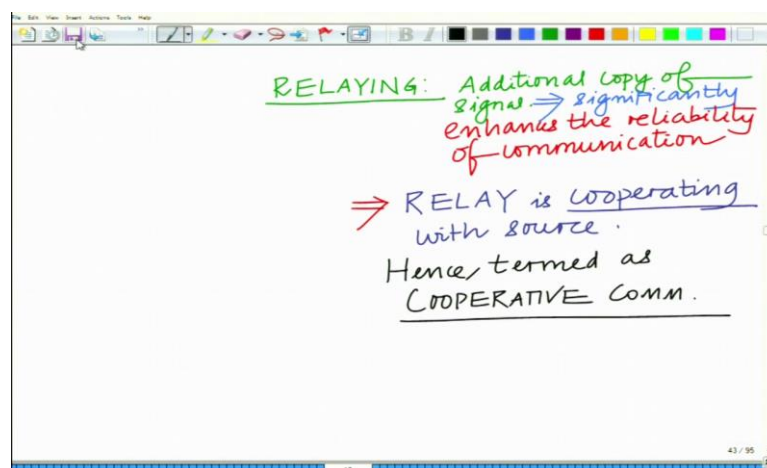 File Edit View Insert Actions Tools Help
B I
RELAYING: Additional copy of
signal ⇒ significantly
enhances the reliability
of communication
⇒ RELAY is cooperating
with source.
Hence, termed as
COOPERATIVE COMM.
43 / 95